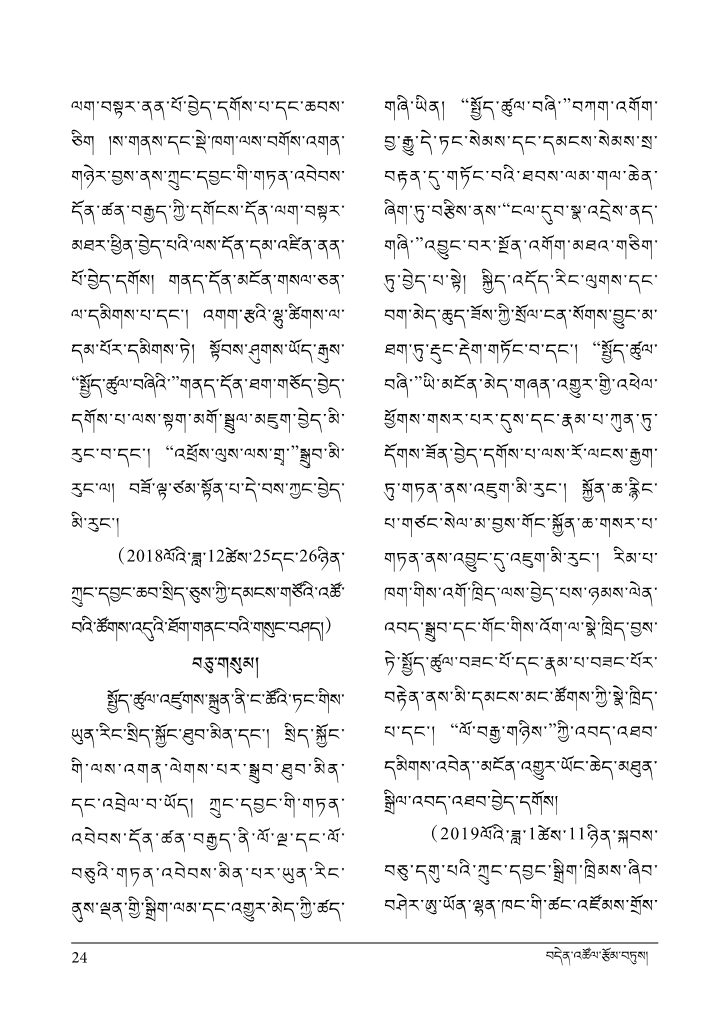 ལག་བསྟར་ནན་པོ་བྱེད་དགོས་པ་དང་ཆབས་
ཅིག །ས་གནས་དང་སྡེ་ཁག་ལས་བགོས་འགན་
གཉེར་བྱས་ནས་ཀྲུང་དབྱང་གི་གཏན་འབེབས་
དོན་ཚན་བརྒྱད་ཀྱི་དགོངས་དོན་ལག་བསྟར་
མཐར་ཕྱིན་བྱེད་པའི་ལས་དོན་དམ་འཛིན་ནན་
པོ་བྱེད་དགོས། གནད་དོན་མངོན་གསལ་ཅན་
ལ་དམིགས་པ་དང་། འགག་རྩའི་ལྷུ་ཚིགས་ལ་
དམ་པོར་དམིགས་ཏེ། སྟོབས་ཤུགས་ཡོད་རྒུས་
“སྤྱོད་ཚུལ་བཞིའི་”གནད་དོན་ཐག་གཅོད་བྱེད་
དགོས་པ་ལས་སྟག་མགོ་སྦྲུལ་མཇུག་བྱེད་མི་
རུང་བ་དང་། “འཕྲོས་ལུས་ལས་གྲྭ་”སྒྲུབ་མི་
རུང་ལ། བཟོ་ལྟ་ཙམ་སྟོན་པ་དེ་བས་ཀྱང་བྱེད་
མི་རུང་།
(2018ལོའི་ཟླ་12ཚེས་25དང་26ཉིན་
ཀྲུང་དབྱང་ཆབ་སྲིད་ཅུས་ཀྱི་དམངས་གཙོའི་འཚོ་
བའི་ཚོགས་འདུའི་ཐོག་གནང་བའི་གསུང་བཤད།)
བཅུ་གསུམ།
སྤྱོད་ཚུལ་འཛུགས་སྐྲུན་ནི་ང་ཚོའི་ཏང་གིས་
ཡུན་རིང་སྲིད་སྐྱོང་ཐུབ་མིན་དང་། སྲིད་སྐྱོང་
གི་ལས་འགན་ལེགས་པར་སྒྲུབ་ཐུབ་མིན་
དང་འབྲེལ་བ་ཡོད། ཀྲུང་དབྱང་གི་གཏན་
འབེབས་དོན་ཚན་བརྒྱད་ནི་ལོ་ལྔ་དང་ལོ་
བཅུའི་གཏན་འབེབས་མིན་པར་ཡུན་རིང་
ནུས་ལྡན་གྱི་སྒྲིག་ལམ་དང་འགྱུར་མེད་ཀྱི་ཚད་
གཞི་ཡིན། “སྤྱོད་ཚུལ་བཞི་”བཀག་འགོག་
བྱ་རྒྱུ་དེ་ཏང་སེམས་དང་དམངས་སེམས་སྲ་
བརྟན་དུ་གཏོང་བའི་ཐབས་ལམ་གལ་ཆེན་
ཞིག་ཏུ་བརྩིས་ནས་“ངལ་དུབ་སྣ་འདྲེས་ནད་
གཞི་”འབྱུང་བར་སྔོན་འགོག་མཐའ་གཅིག་
ཏུ་བྱེད་པ་སྟེ། སྐྱིད་འདོད་རིང་ལུགས་དང་
བག་མེད་ཆུད་ཟོས་ཀྱི་སྲོལ་ངན་སོགས་བྱུང་མ་
ཐག་ཏུ་རྡུང་རྡེག་གཏོང་བ་དང་། “སྤྱོད་ཚུལ་
བཞི་”ཡི་མངོན་མེད་གཞན་འགྱུར་གྱི་འཕེལ་
ཕྱོགས་གསར་པར་དུས་དང་རྣམ་པ་ཀུན་ཏུ་
དོགས་ཟོན་བྱེད་དགོས་པ་ལས་རོ་ལངས་རྒྱག་
ཏུ་གཏན་ནས་འཇུག་མི་རུང་། སྐྱོན་ཆ་རྙིང་
པ་གཙང་སེལ་མ་བྱས་གོང་སྐྱོན་ཆ་གསར་པ་
གཏན་ནས་འབྱུང་དུ་འཇུག་མི་རུང་། རིམ་པ་
ཁག་གིས་འགོ་ཁྲིད་ལས་བྱེད་པས་ཉམས་ལེན་
འབད་སྒྲུབ་དང་གོང་གིས་འོག་ལ་སྣེ་ཁྲིད་བྱས་
ཏེ་སྤྱོད་ཚུལ་བཟང་པོ་དང་རྣམ་པ་བཟང་པོར་
བརྟེན་ནས་མི་དམངས་མང་ཚོགས་ཀྱི་སྣེ་ཁྲིད་
པ་དང་། “ལོ་བརྒྱ་གཉིས་”ཀྱི་འབད་འཐབ་
དམིགས་འབེན་མངོན་འགྱུར་ཡོང་ཆེད་མཐུན་
སྒྲིལ་འབད་འཐབ་བྱེད་དགོས།
(2019ལོའི་ཟླ་1ཚེས་11ཉིན་སྐབས་
བཅུ་དགུ་པའི་ཀྲུང་དབྱང་སྒྲིག་ཁྲིམས་ཞིབ་
བཤེར་ཨུ་ཡོན་ལྷན་ཁང་གི་ཚང་འཛོམས་གྲོས་
24
བདེན་འཚོལ་རྩོམ་བཏུས།